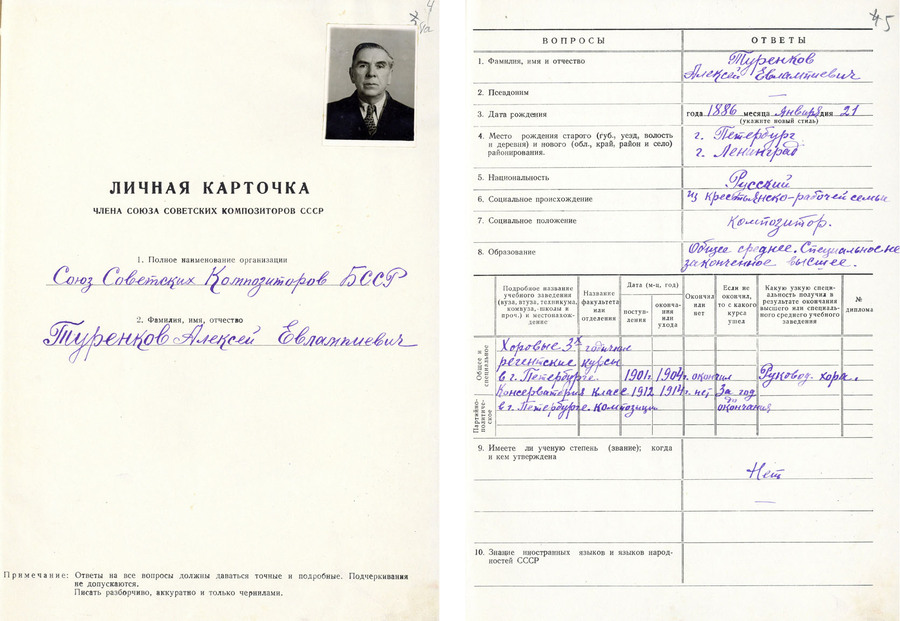 4
4а
ЛИЧНАЯ КАРТОЧКА
ЧЛЕНА СОЮЗА СОВЕТСКИХ КОМПОЗИТОРОВ СССР
1. Полное наименование организации
Союз Советских Композиторов БССР
2. Фамилия, имя, отчество
Туренков Алексей Евлампиевич
Примечание: Ответы на все вопросы должны даваться точные и подробные. Подчеркивания
не допускаются.
Писать разборчиво, аккуратно и только чернилами.
5
ВОПРОСЫ ОТВЕТЫ
1. Фамилия, имя и отчество
Туренков
Алексей Евлампиевич
2. Псевдоним —
3. Дата рождения
года 1886 месяца Января дня 21
(укажите новый стиль)
4. Место рождения старого (губ., уезд, волость
и деревня) и нового (обл., край, район и село)
районирования.
г. Петербург
г. Ленинград
5. Национальность Русский
6. Социальное происхождение из крестьянско-рабочей семьи
7. Социальное положение композитор.
8. Образование
Общее среднее. Специальное не
законченное высшее.
Подробное название
учебного заведения
(вуза, втуза, техникума,
комвуза, школы и
проч.) и местонахож-
дение
Название
факультета
или
отделения
Дата (м-ц, год)
поступ-
ления
оконча-
ния
или
ухода
Окончил
или
нет
Если не
окончил,
то с какого
курса
ушел
Какую узкую специ-
альность получил в
результате окончания
высшего или специаль-
ного среднего учебного
заведения
№
диплома
Общее и
специальное
Хоровые 3х годичные
регентские курсы
в г. Петербурге. 1901г. 1904г. окончил Руковод. хора.
Партийно-
политиче-
ское
Консерватория класс 1912 1914г. нет За год
в г. Петербурге. композиции до окончания
9. Имеете ли ученую степень (звание); когда
и кем утверждена
Нет
—
10. Знание иностранных языков и языков народ-
ностей СССР